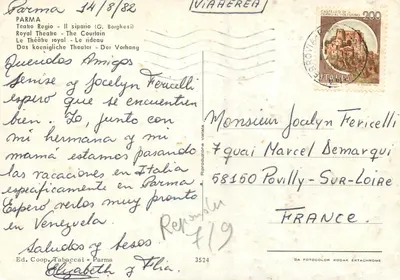 Parma 14/8/82
PARMA
Teatro Regio - Il sipario (G. Borghesi)
Royal Theatre - The Courtain
Le Théâtre royal - Le rideau
Das koenigliche Theater - Der Vorhang
Queridos Amigos
Denise y Jocelyn Fericelli
espero que se encuentren
bien. Yo, junto con
mi hermana y mi
mamá estamos pasando
las vacaciones en Italia
específicamente en Parma
Espero verlos muy pronto
en Venezuela.
Saludos y besos
Elizabeth y Flia.
Ed. Coop. Tabaccai - Parma
3524
VIA AEREA
200
Monsieur Jocelyn Fericelli
7 quai Marcel Demarqui
58150 Pouilly-Sur-Loire
FRANCE.
7/9